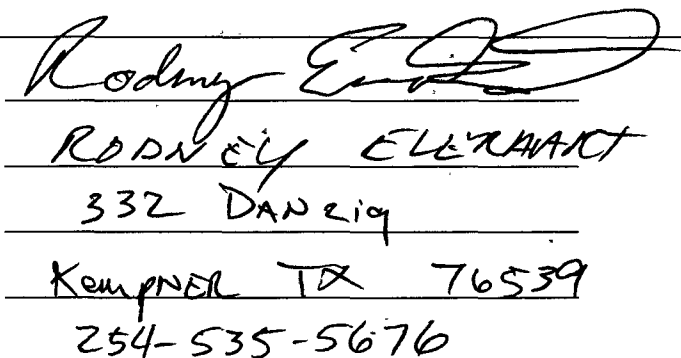 Rodney
RODNEY
332 DANZig
KempNER TX 76539
254-535-5676